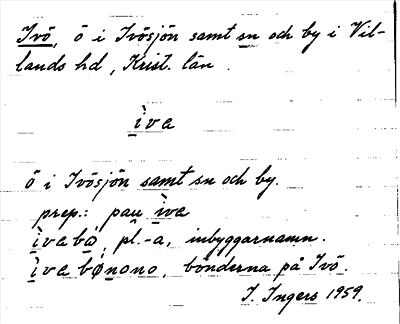 Ivö, ö i Ivösjön samt sn och by i Vil-
lands hd, Krist. län.
ìva
ö i Ivösjön samt sn och by.
prep.: pau ìva
ìvabo, pl. -a, inbyggarnamn.
ìvabónono, bönderna på Ivö.
I. Ingers 1959.